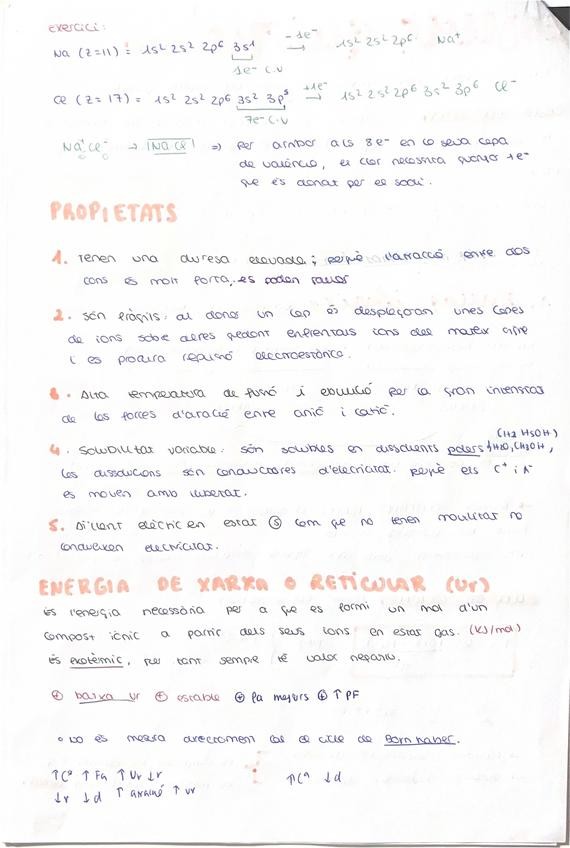 exercici:
Na (Z=11) = 1s² 2s² 2p⁶ 3s¹ → -1e⁻ 1s² 2s² 2p⁶ Na⁺
1e⁻ C.V
Cl (Z=17) = 1s² 2s² 2p⁶ 3s² 3p⁵ → +1e⁻ 1s² 2s² 2p⁶ 3s² 3p⁶ Cl⁻
7e⁻ C.V
Na⁺Cl⁻ → NaCl ⇒ Per arribar als 8e⁻ en la seva capa
de valència, el clor necessita guanyar 1e⁻
que és donat per el sodi.
PROPIETATS
1. Tenen una duresa elevada; perquè l'atracció entre dos
ions és molt forta,
2. Són fràgils: al donar un cop es desplaçaran unes capes
de ions sobre altres quedant enfrentats ions del mateix signe
i es produira repulsió electroestàtica.
3. Alta temperatura de fusió i ebullició per la gran intensitat
de les forces d'atració entre anió i catió.
4. Solubilitat variable: són solubles en dissolvents polars (H2O, CH3OH,
les dissolucions són conductores d'elecricitat. perquè els C⁺ i A⁻
es mouen amb llibertat.
5. Aïllant elèctric en estat (s) com que no tenen mobilitat no
condueixen electricitat.
ENERGIA DE XARXA O RETICULAR (Ur)
és l'energia necessària per a que es formi un mol d'un
compost iònic a partir dels seus ions en estat gas. (KJ/mol)
És exotèrmic, per tant sempre té valor negatiu.
⊕ baixa Ur ⊕ estable ⊕ Fa majors ⊕ ↑ PF
• No es mesura directament sol el cicle de Born Haber.
↑Cª ↑Fa ↑Ur ↓r
↑Cª ↓d
↓r ↓d ↑ atració ↑ Ur